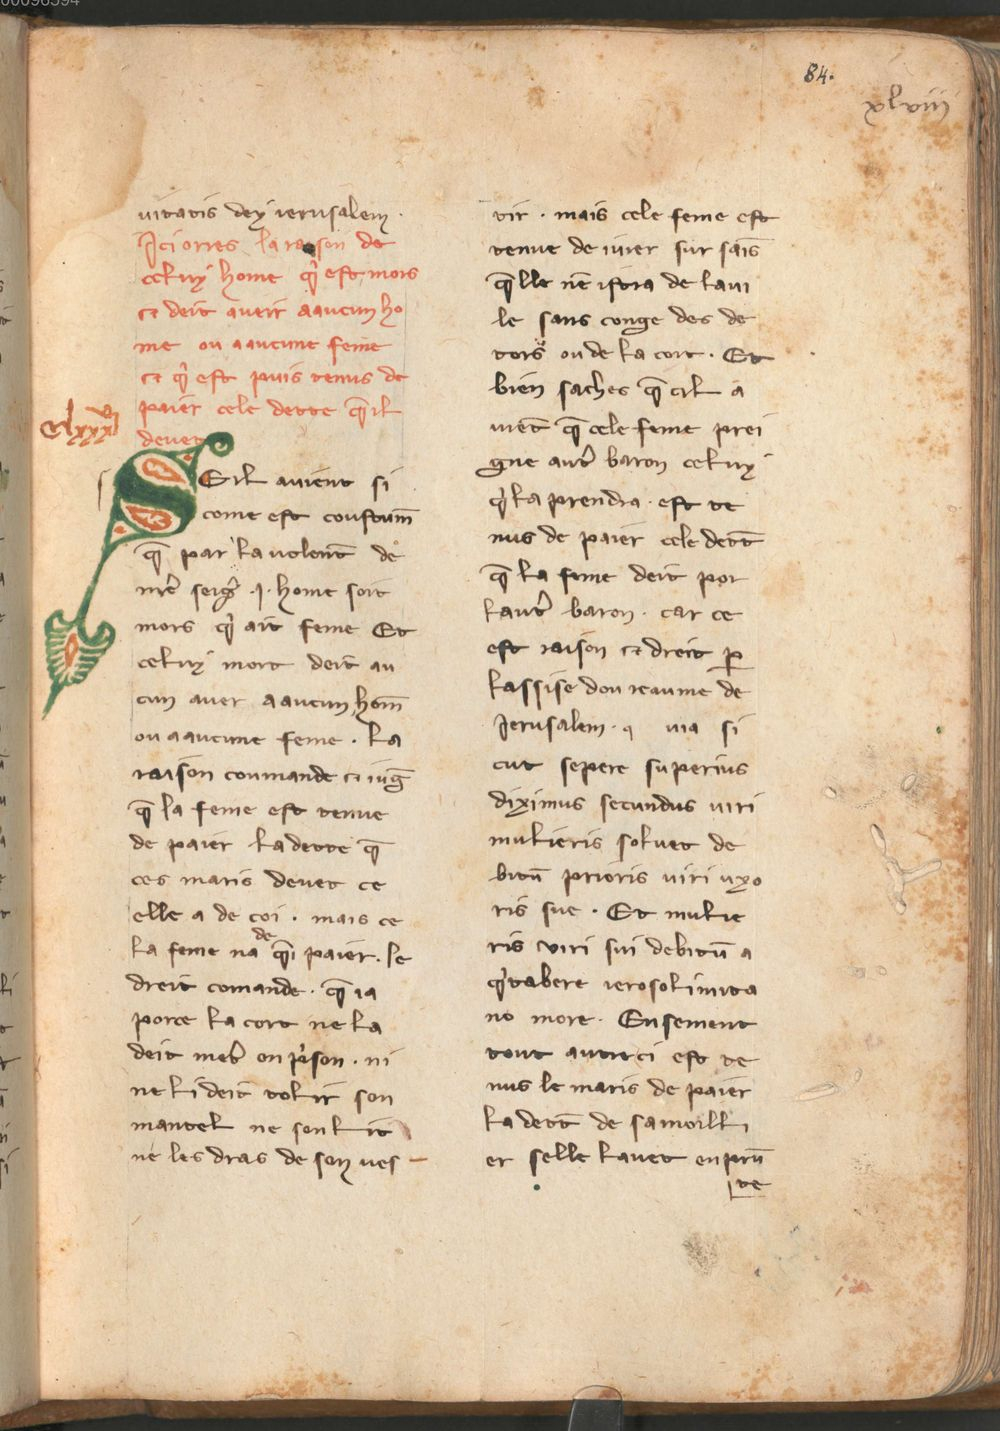 00096394
84.
xlviii
uitatis dey ierusalem.
Ici orres la raison de
celuy home q̃ est mors
et deit aveir a aucun ho
me ou a aucune feme
et q̃ est puis tenus de
paier cele dette q̃ il
clxxxvi
devet
S Eil avient si
come est coustum̃
q̃ par la volent̃ de
nr̃e seigr̃ .i. home soit
mors q̃ ait feme Et
celuy mort deit au
cun aver a aucun hom̃
ou a aucune feme. La
raison coumande et iug̃
q̃ la feme est tenue
de paier la dette q̃
ces maris devet ce
elle a de coi. mais ce
la feme na de q̃i paier. le
dreit comande. q̃ ia
porce la cort ne la
deit metr̃ en pison. ni
ne li deit tolir son
mantel ne son lit
ne les dras de son ves-
tir. mais cele feme est
tenue de iurer sur sais̃
q̃lle nẽ istra de la vi
le sans conge des de
tors ou de la cort. Et
bien saches q̃ cil a
vient̃ q̃ cele feme prei
gne autr̃ baron celuy
q̃ la prendra. est te
nus de paier cele dett̃
q̃ la feme deit por
lautr̃ baron. car ce
est raison et dreit p̱
lassise dou reaume de
Ierusalem. q via si
cut sepere superius
diximus secundus viri
mulieris soluet de
bitũ prioris viri uxo
ris sue. Et mulie
ris viri sui debitũ a
q̃tabere ierosolimita
no more. Ensement
tout autreci est te
nus le maris de paier
la dett̃ de sa moilli
er selle lavet enprũ
te